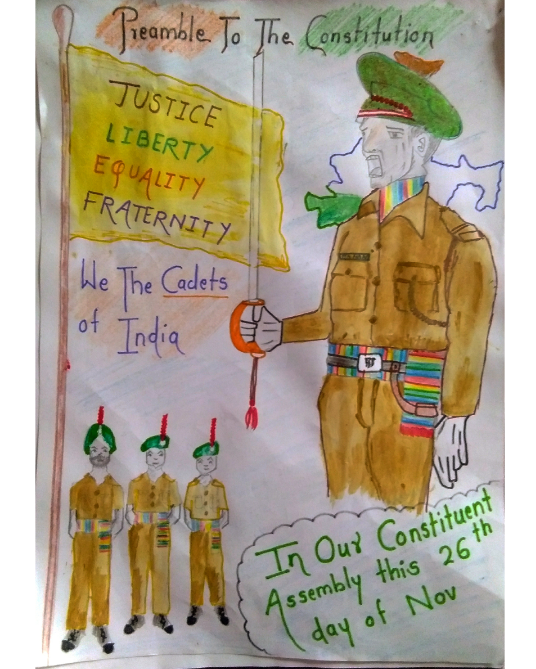 Preamble To The Constitution
JUSTICE
LIBERTY
EQUALITY
FRATERNITY
We The Cadets
of India
In Our Constituent
Assembly this 26th
day of Nov